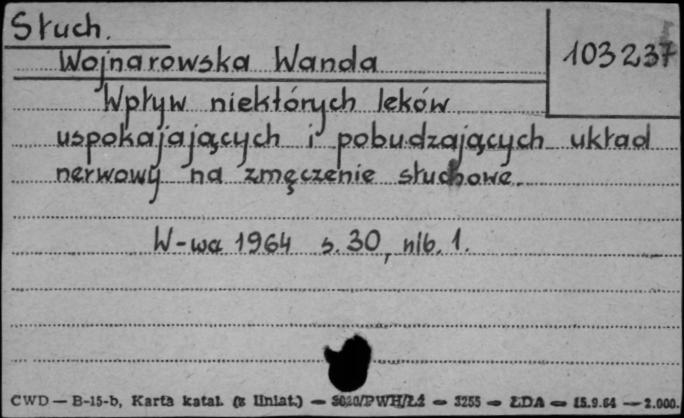 Słuch.
103237
Wojnarowska Wanda
Wpływ niektórych leków
uspokajających i pobudzających układ
nerwowy na zmęczenie słuchowe.
W-wa 1964 s. 30, nlb. 1.
CWD — B-15-b, Karta katal. (z liniat.) — PWH/Łź — 3255 — ŁDA — 15.9.64 — 2.000.